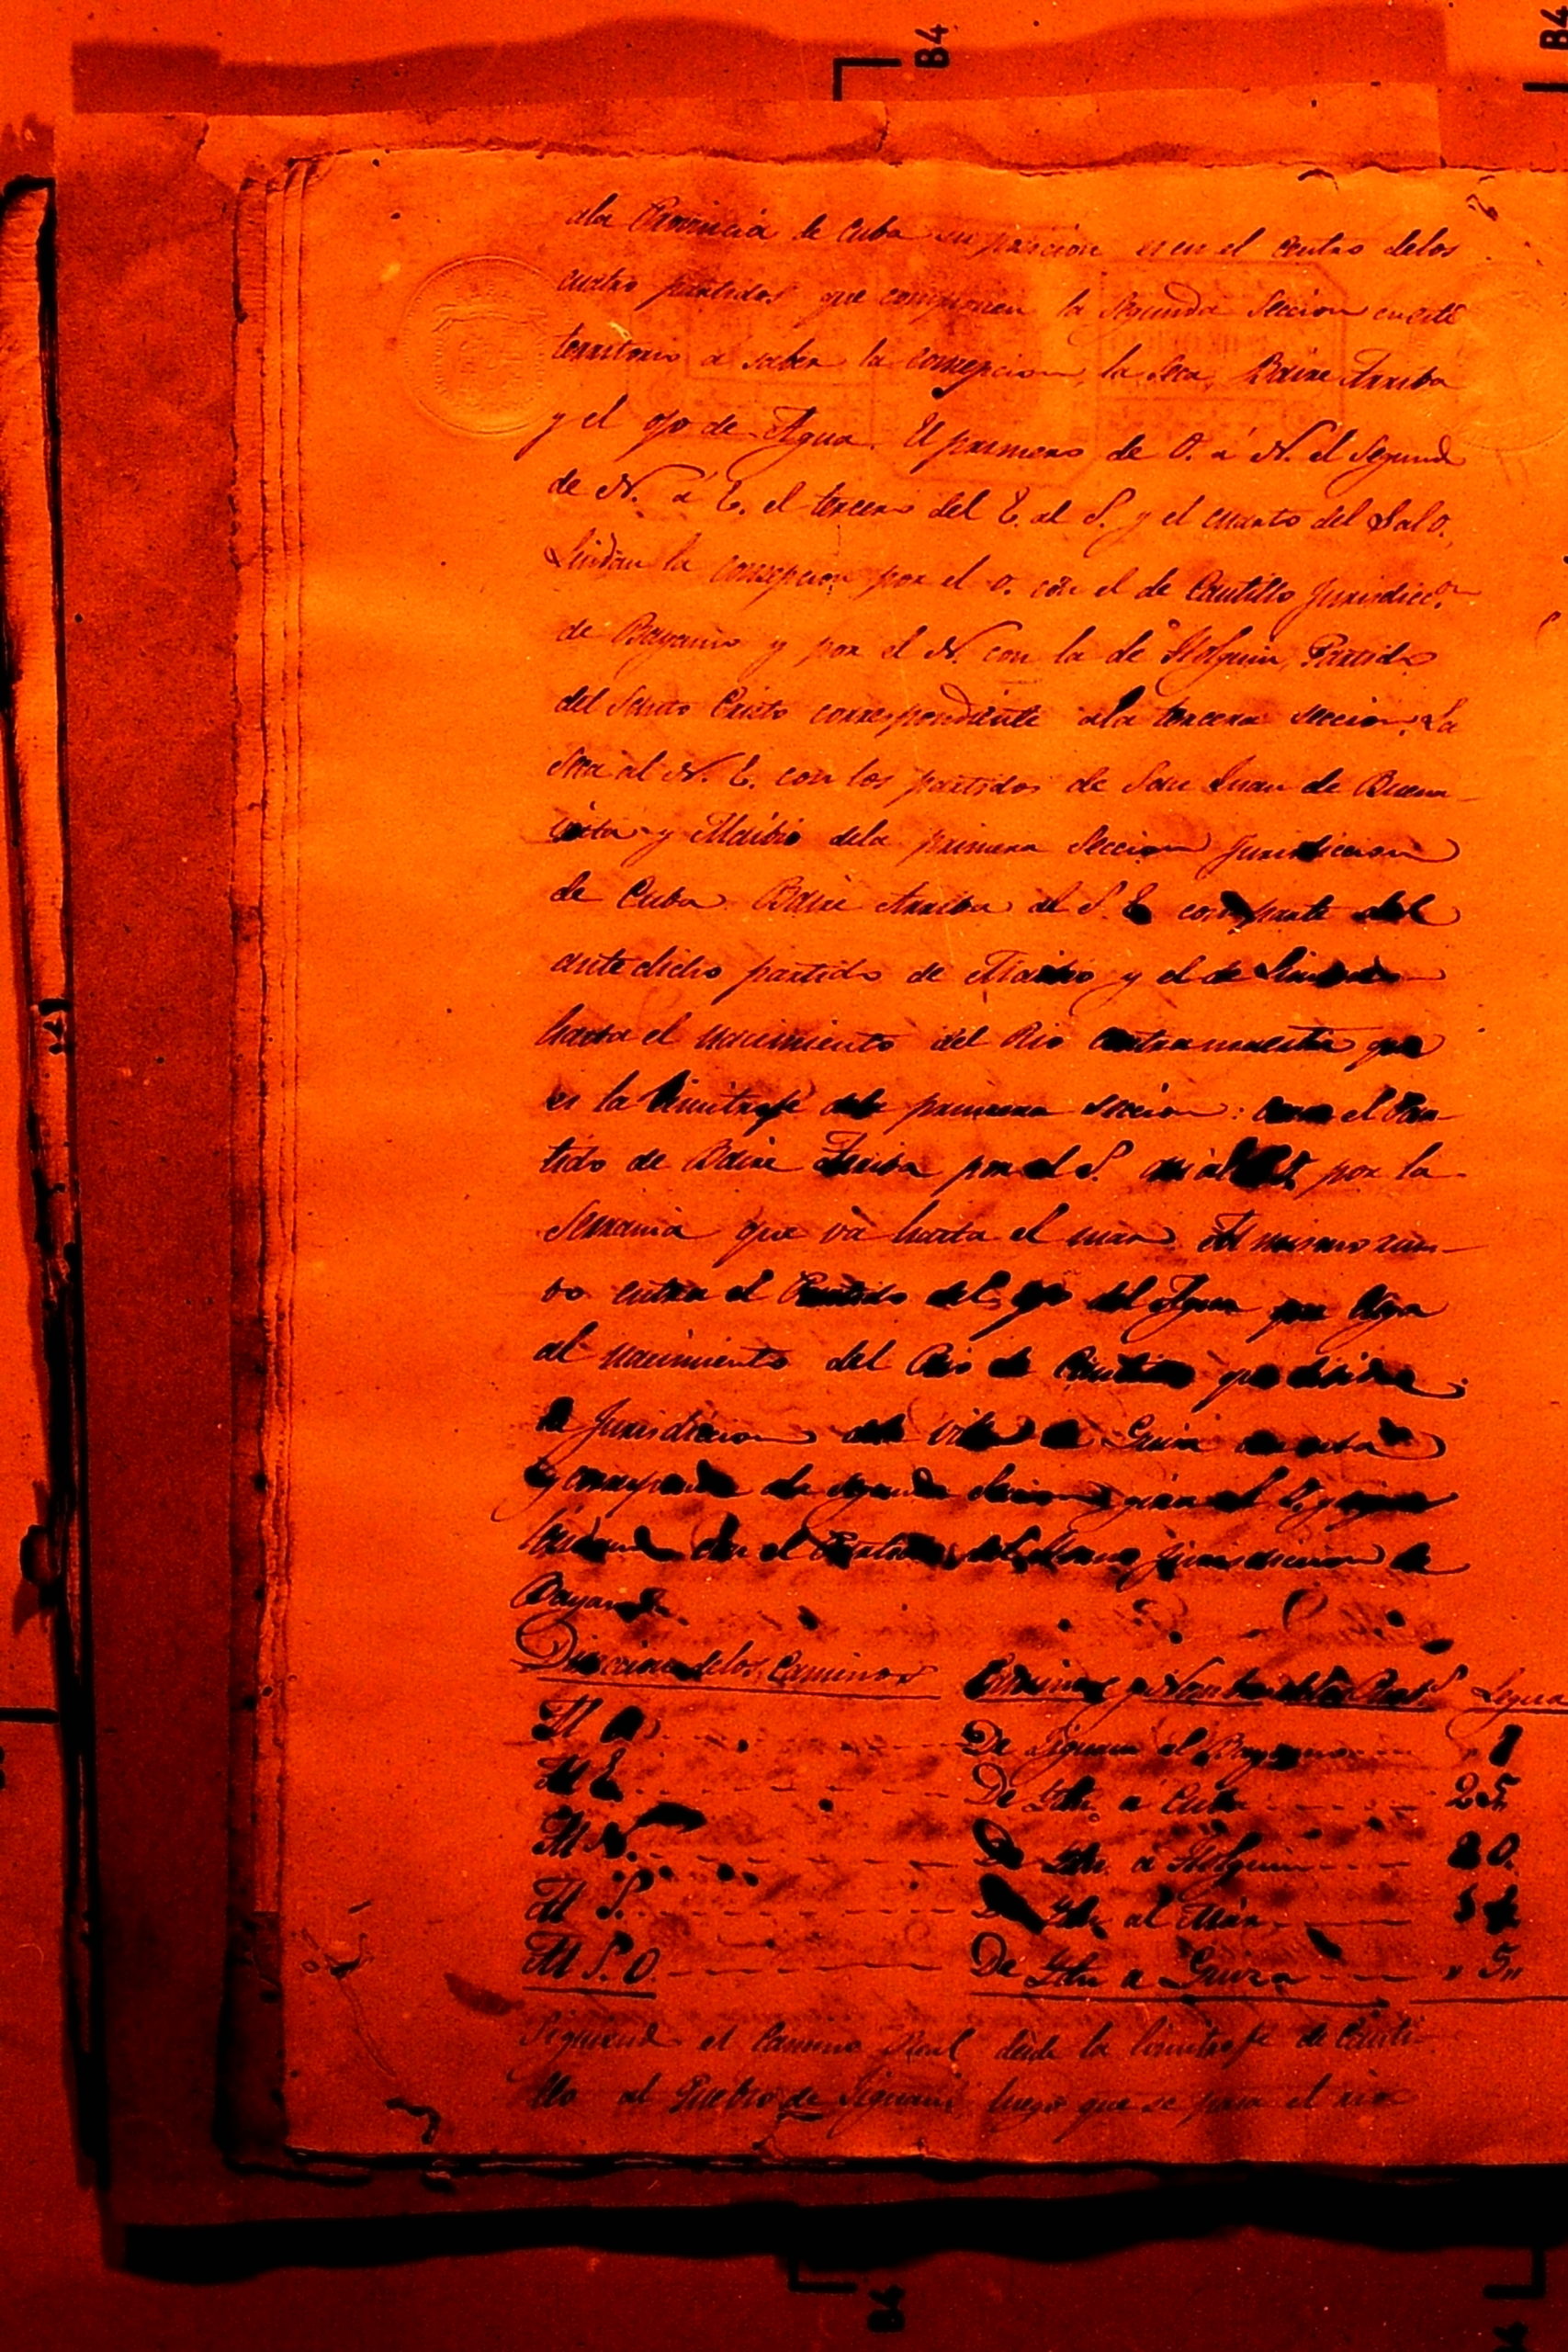 B4
B4
ala Provincia de Cuba su posicion es en el centro delos
cuatro partidos que componen la Segunda Seccion en este
territorio á saber la Concepcion, la Seca, Baire Arriba
y el ojo de Agua. El primero de O. á N. el Segundo
de N. á E. el tercero del E. al S. y el cuarto del S. al O.
Lindan la Concepcion por el O. con el de Cautillo Jurisdicc.on
de Bayamo y por el N. con la de Holguin, Partido
del Santo Cristo correspondiente ala tercera seccion. La
Seca al N. E. con los partidos de San Juan de Buena
vista y Maibio dela primera Seccion Jurisdiccion
de Cuba. Baire Arriba al S. E. con parte del
antedicho partido de Maibio y el de
hasta el nacimiento del Rio Contramaestre que
es la limitrofe dela primera seccion: el Par-
tido de Baire Arriba por el S. por la
Serrania que vá hasta el mar. Al mismo rum-
bo entra el Partido del ojo del Agua que llega
al nacimiento del Rio de Cautillo que divide
la Jurisdiccion Guisa
y corresponde ala segunda Seccion
con el Partido del Horno Jurisdiccion de
Bayamo.
Direccion delos Caminos Caminos y Nombre delos Legua
Al O. De Jiguani al Bayamo
Al E. De Ydn. á Cuba 25
Al N. De Ydn. á Holguin 20.
Al S. De Ydn. al Mar
Al S. O. De Ydn. a Guiza " 5 "
Siguiendo el Camino Real desde la limitrofe de Cauti-
llo al Pueblo de Jiguani, luego que se pasa el rio
B4